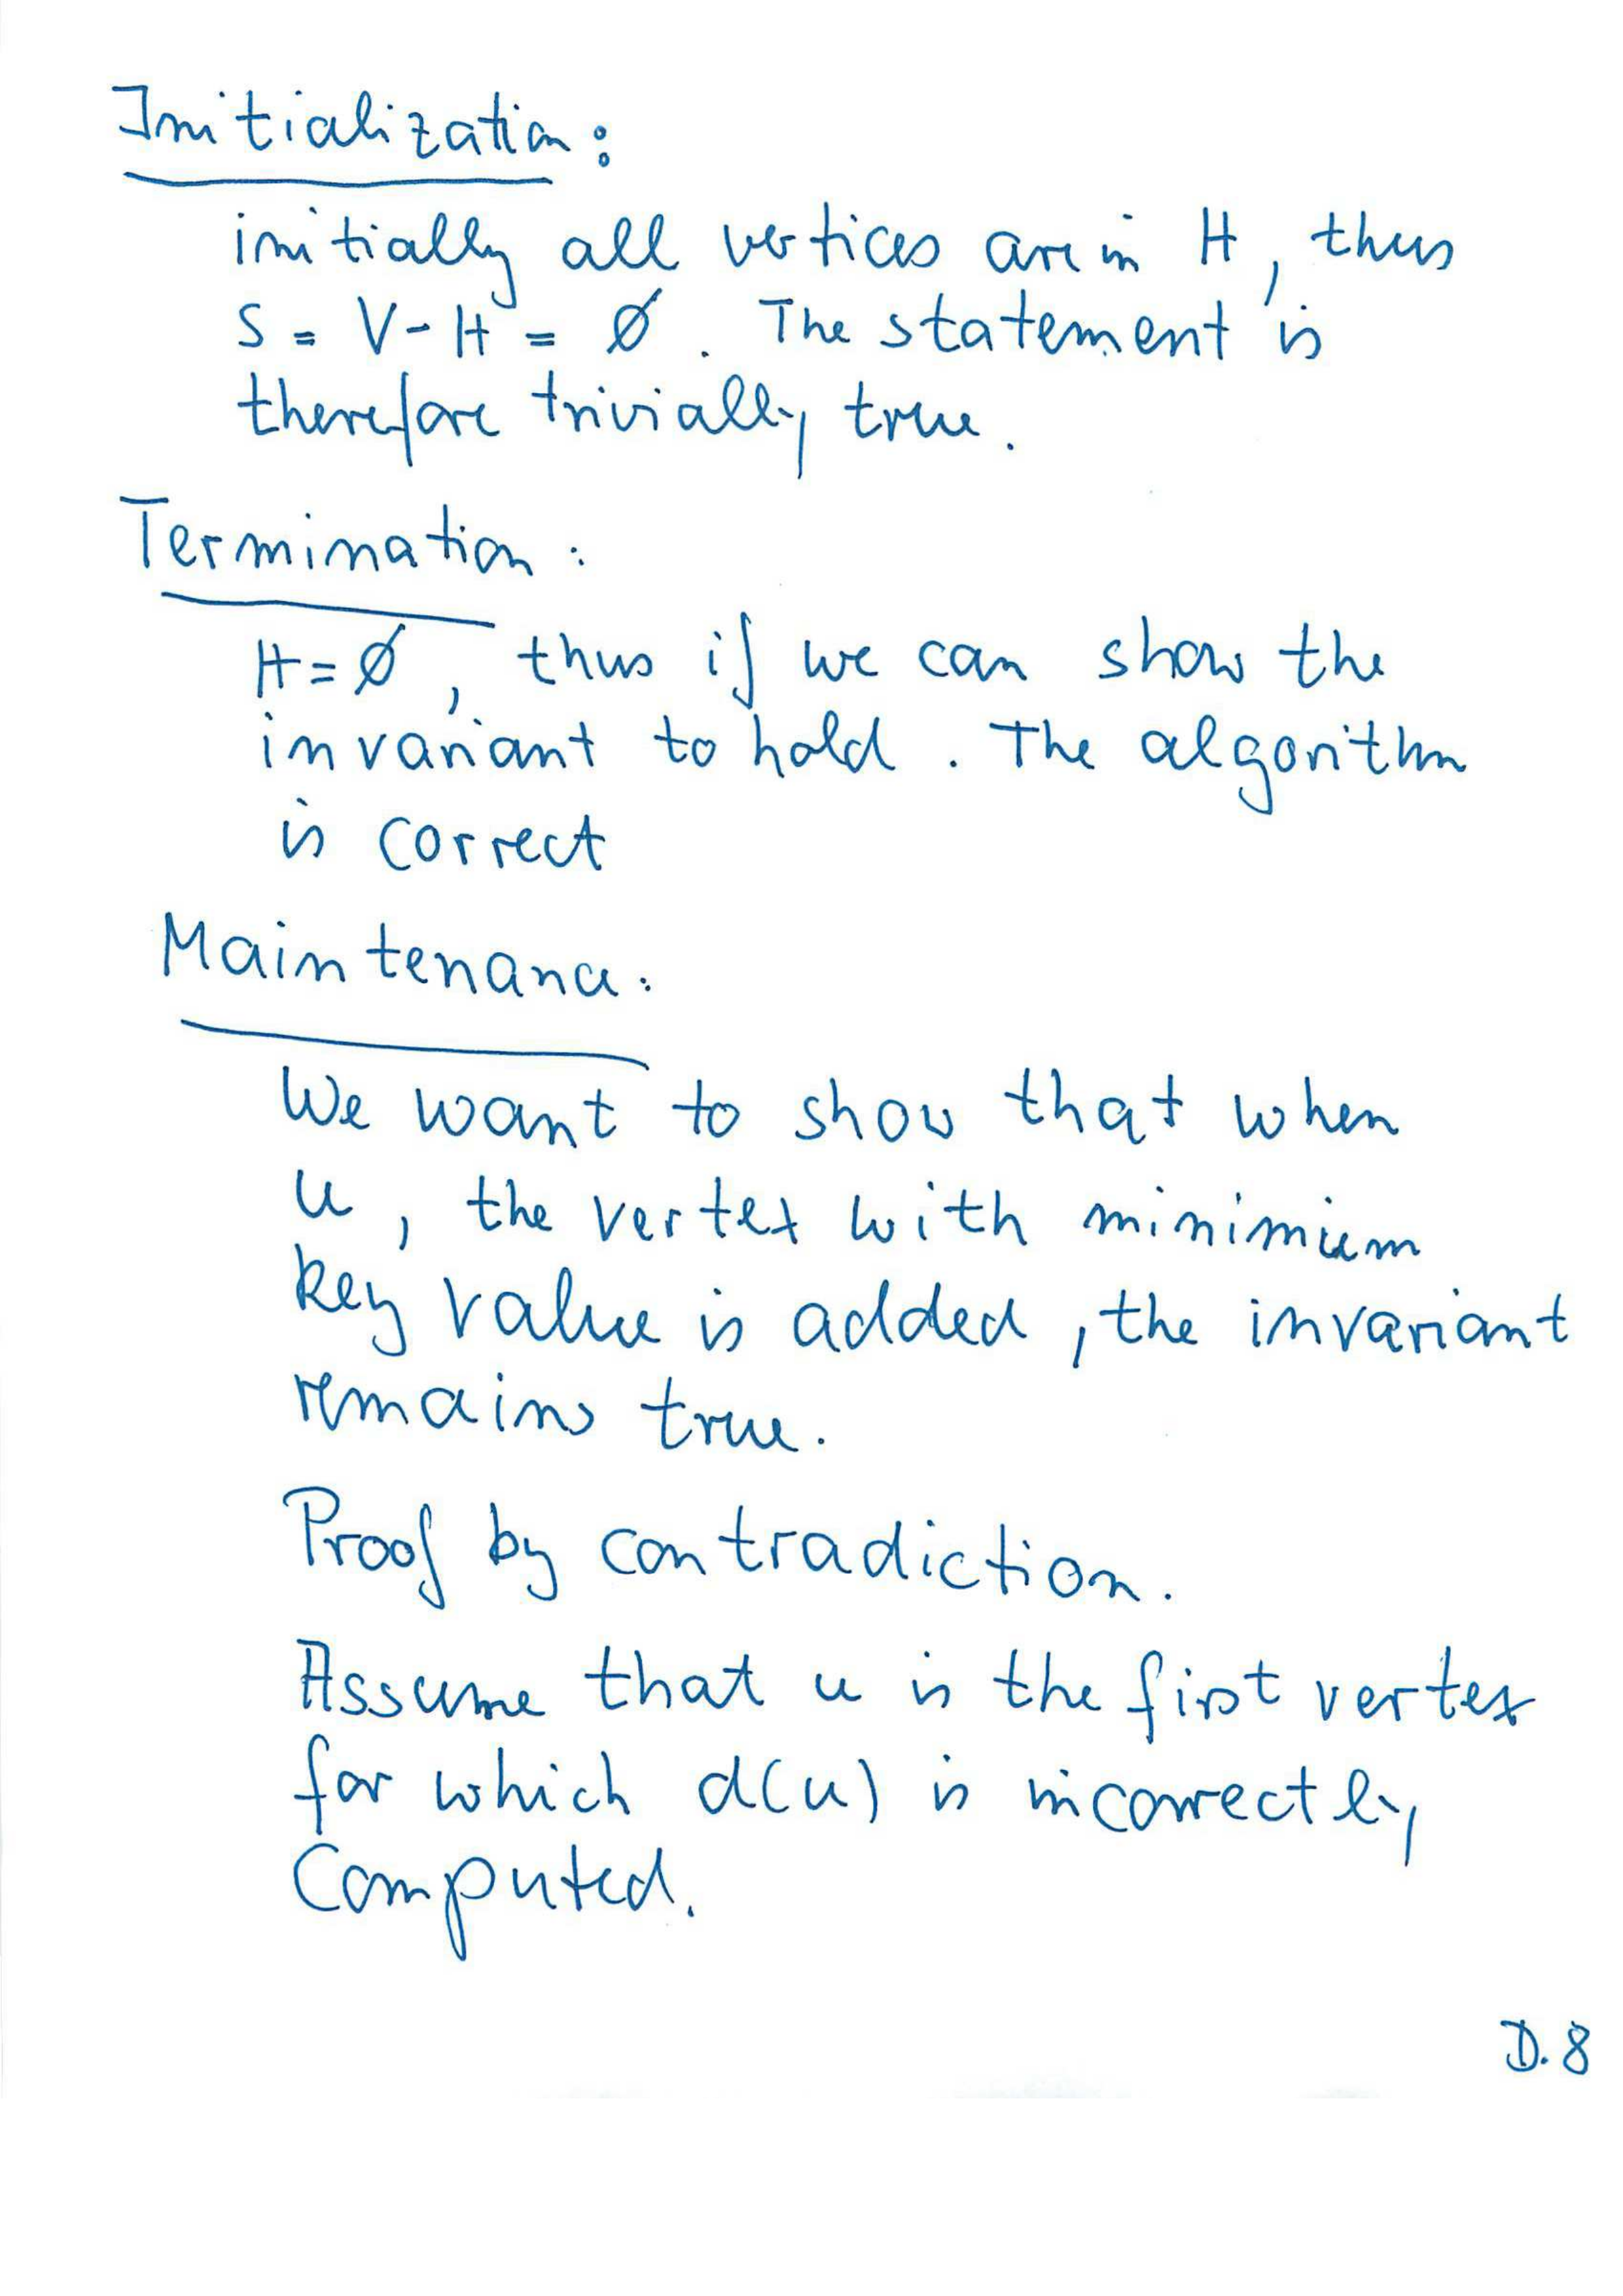 Initialization:
initially all vertices are in H, thus
S = V - H = Ø. The statement is
therefore trivially true.
Termination:
H = Ø, thus if we can show the
invariant to hold. The algorithm
is correct
Maintenance:
We want to show that when
u, the vertex with minimium
key value is added, the invariant
remains true.
Proof by contradiction.
Assume that u is the first vertex
for which d(u) is incorrectly
computed.
D.8